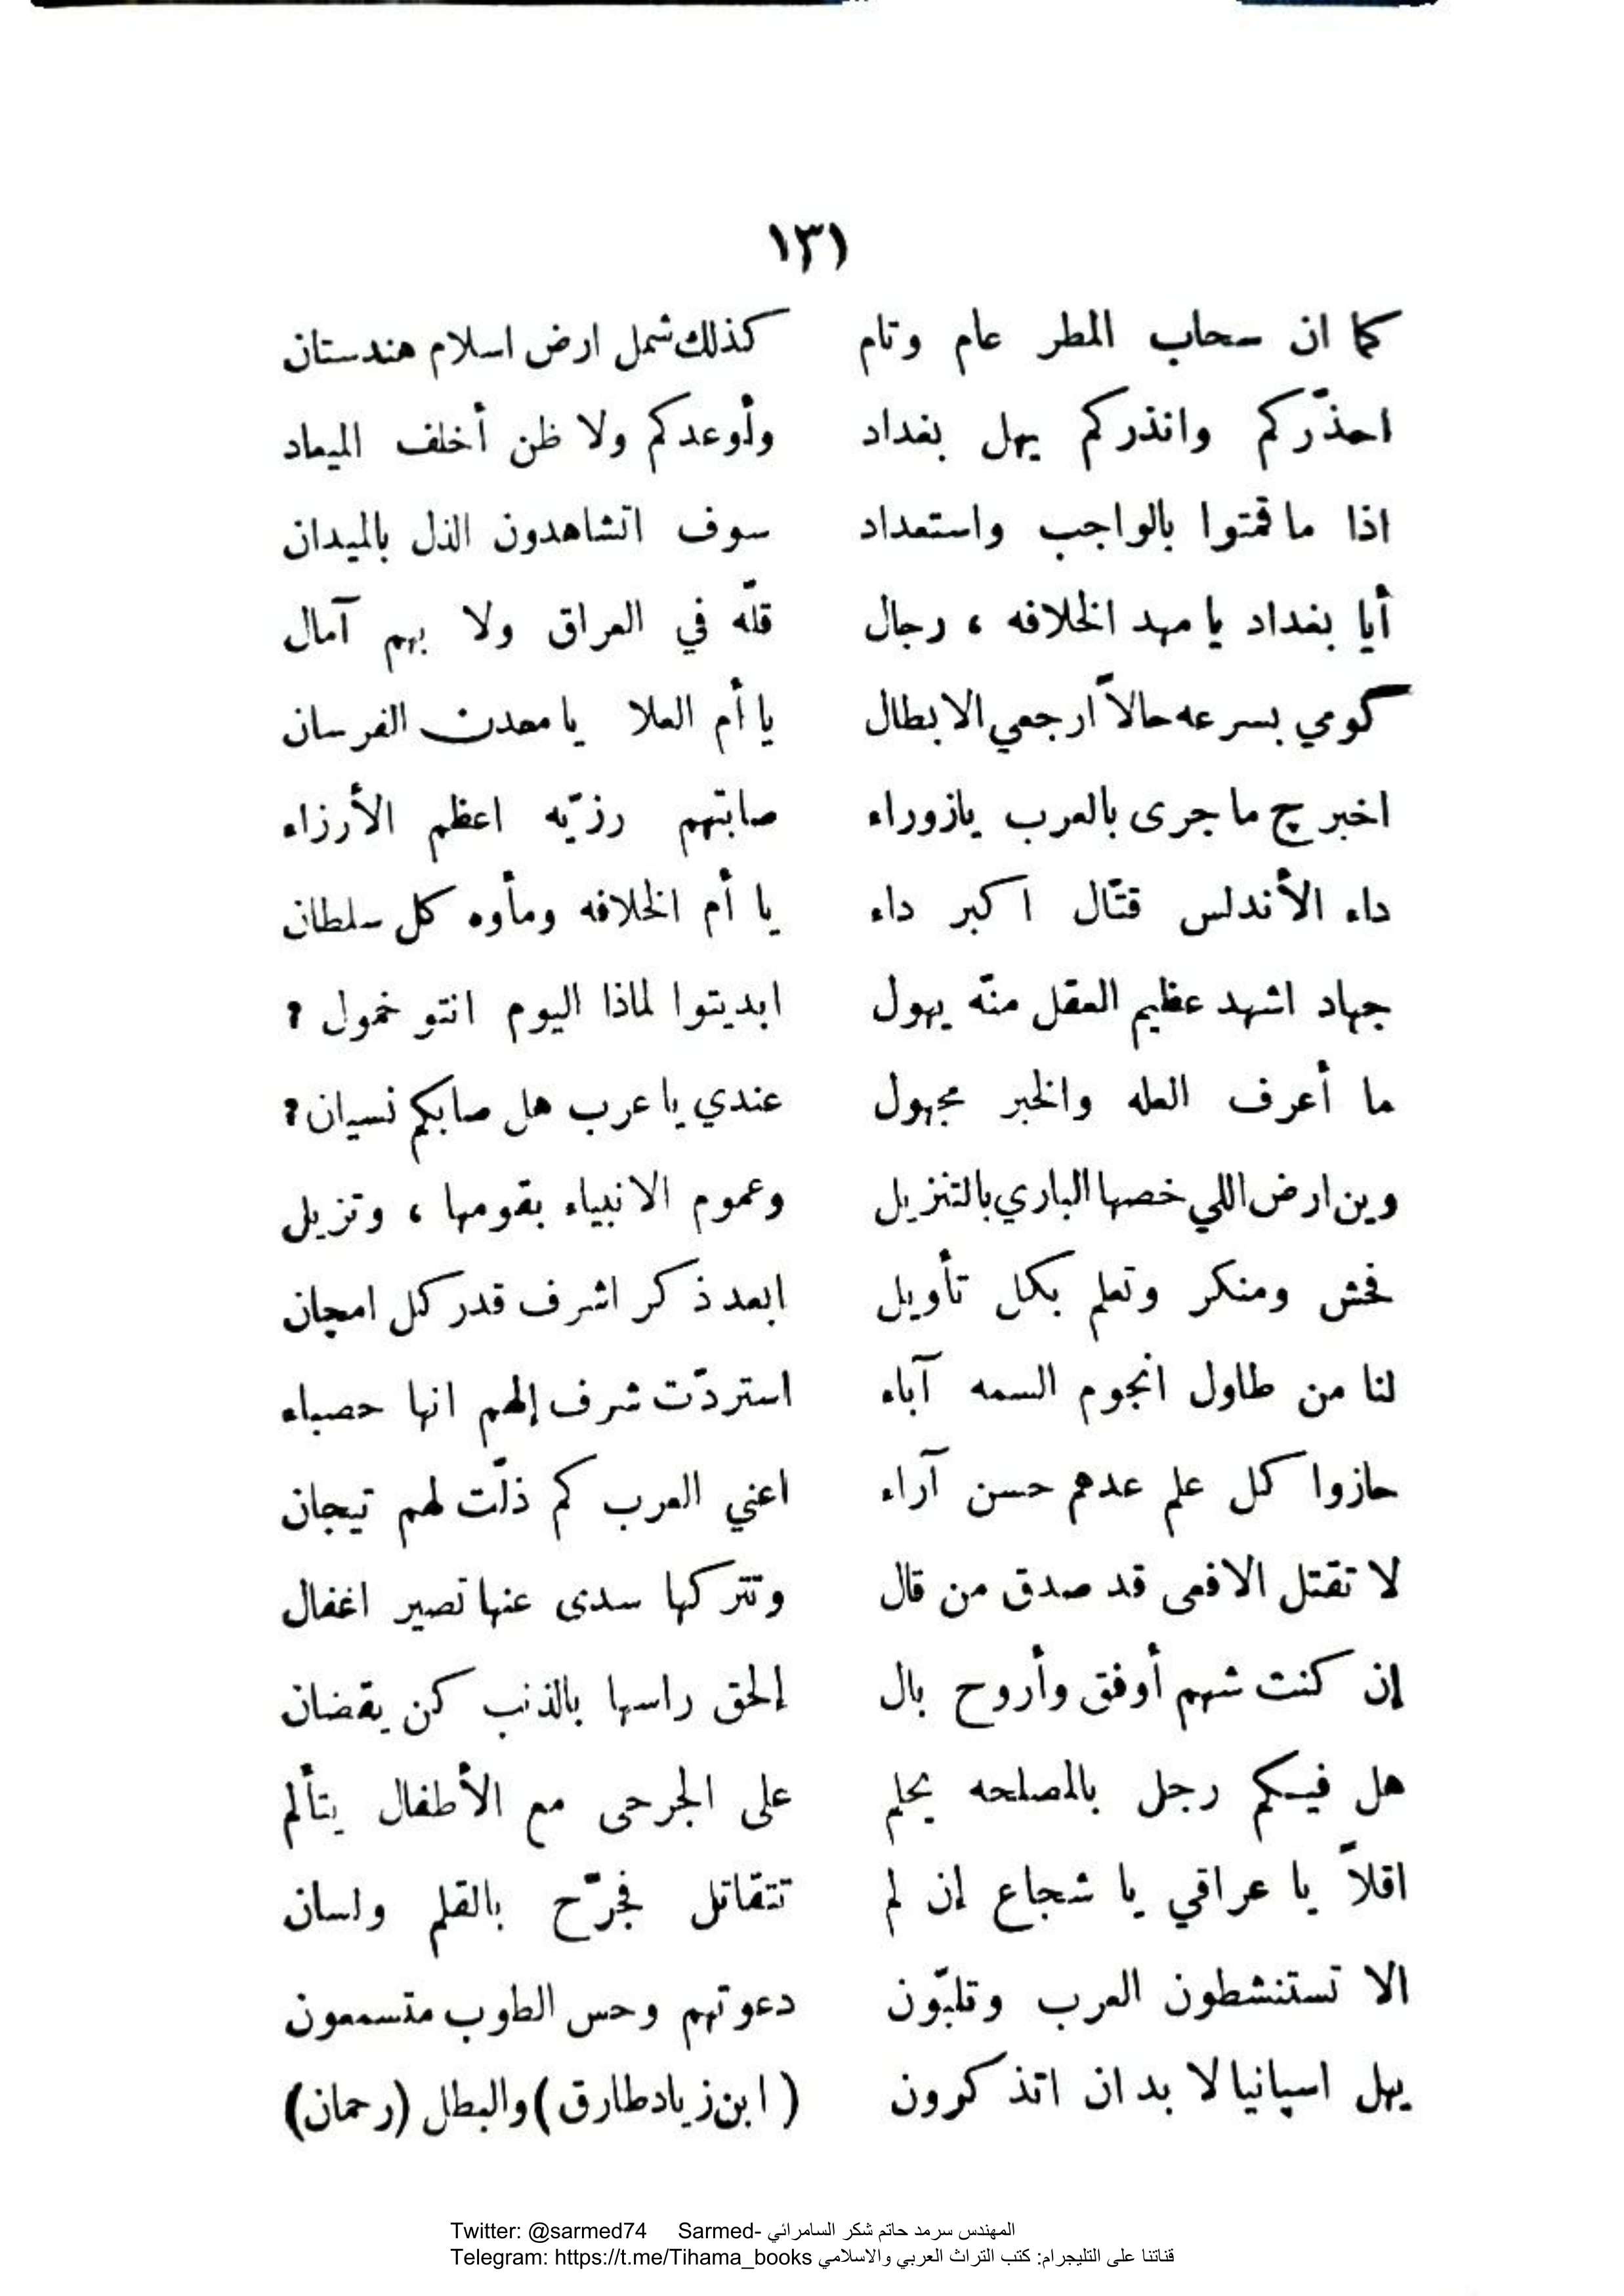 ١٣١
كما ان سحاب المطر عام وتام كذلك شمل ارض اسلام هندستان
احذّركم وانذركم يهل بغداد وأوعدكم ولا ظن أخلف الميعاد
اذا ما قمتوا بالواجب واستعداد سوف اتشاهدون الذل بالميدان
أيا بغداد يا مهد الخلافه ، رجال قلّه في العراق ولا بهم آمال
كومي بسرعه حالاً ارجعي الابطال يا أم العلا يا معدن الفرسان
اخبرچ ما جرى بالعرب يازوراء صابتهم رزيّه اعظم الأرزاء
داء الأندلس قتّال اكبر داء يا أم الخلافه ومأوه كل سلطان
جهاد اشهد عظيم العقل منّه يهول ابديتوا لماذا اليوم انتو خمول ؟
ما أعرف العله والخبر مجهول عندي يا عرب هل صابكم نسيان ؟
وين ارض اللي خصها الباري بالتنزيل وعموم الانبياء بقومها ، وتزيل
فحش ومنكر وتعلم بكل تأويل ابعد ذكر اشرف قدر كل امچان
لنا من طاول انجوم السمه آباء استردّت شرف إلهم انها حصباء
حازوا كل علم عدهم حسن آراء اعني العرب كم ذلّت لهم تيجان
لا تقتل الافعى قد صدق من قال وتتركها سدى عنها تصير اغفال
إن كنت شهم أوفق وأروح بال إلحق راسها بالذنب كن يقضان
هل فيكم رجل بالمصلحه يحلم على الجرحى مع الأطفال يتألم
اقلاً يا عراقي يا شجاع إن لم تتقاتل فجرّح بالقلم ولسان
الا تستنشطون العرب وتلبّون دعوتهم وحس الطوب متسمعون
يهل اسپانيا لا بد ان اتذكرون ( ابن زياد طارق ) والبطل (رحمان)
Twitter: @sarmed74 Sarmed- المهندس سرمد حاتم شكر السامرائي
Telegram: https://t.me/Tihama_books قناتنا على التليجرام: كتب التراث العربي والاسلامي